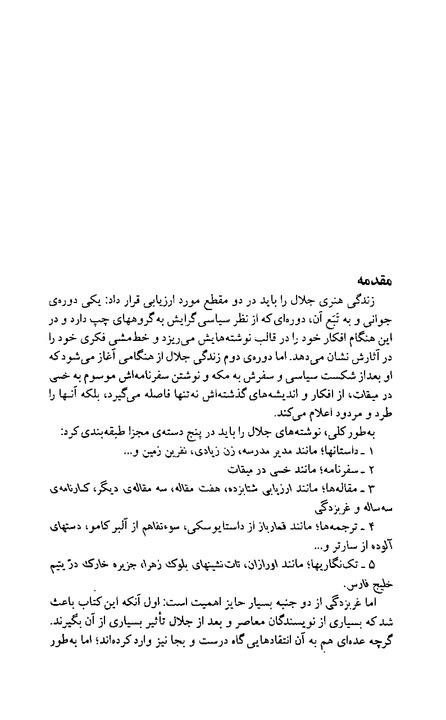 مقدمه
زندگی هنری جلال را باید در دو مقطع مورد ارزیابی قرار داد: یکی دوره‌ی
جوانی و به تَبَع آن، دوره‌ای‌که از نظر سیاسی گرایش به‌گروههای چپ دارد و در
این هنگام افکار خود را در قالب نوشته‌هایش می‌ریزد و خط‌مشی فکری خود را
در آثارش نشان می‌دهد. اما دوره‌ی دوم زندگی جلال از هنگامی آغاز می‌شود که
او بعداز شکست سیاسی و سفرش به مکه و نوشتن سفرنامه‌اش موسوم به خسی
در میقات، از افکار و اندیشه‌های گذشته‌اش نه‌تنها فاصله می‌گیرد، بلکه آنها را
طرد و مردود اعلام می‌کند.
به‌طورکلی، نوشته‌های جلال را باید در پنج دسته‌ی مجزا طبقه‌بندی کرد:
۱ ـ داستانها؛ مانند مدیر مدرسه، زن زیادی، نفرین زمین و...
۲ ـ سفرنامه؛ مانند خسی در میقات
۳ ـ مقاله‌ها؛ مانند ارزیابی شتابزده، هفت مقاله، سه مقاله‌ی دیگر، کارنامه‌ی
سه‌ساله و غربزدگی
۴ ـ ترجمه‌ها؛ مانند قمارباز از داستایوسکی، سوءتفاهم از آلبر کامو، دستهای
آلوده از سارتر و...
۵ ـ تک‌نگاریها؛ مانند اورازان، تات‌نشینهای بلوک زهرا، جزیره خارک درّ یتیم
خلیج فارس.
اما غربزدگی از دو جنبه بسیار حایز اهمیت است: اول آنکه این‌کتاب باعث
شد که بسیاری از نویسندگان معاصر و بعد از جلال تأثیر بسیاری از آن بگیرند.
گرچه عده‌ای هم به آن انتقادهایی گاه درست و بجا نیز وارد کرده‌اند؛ اما به‌طور